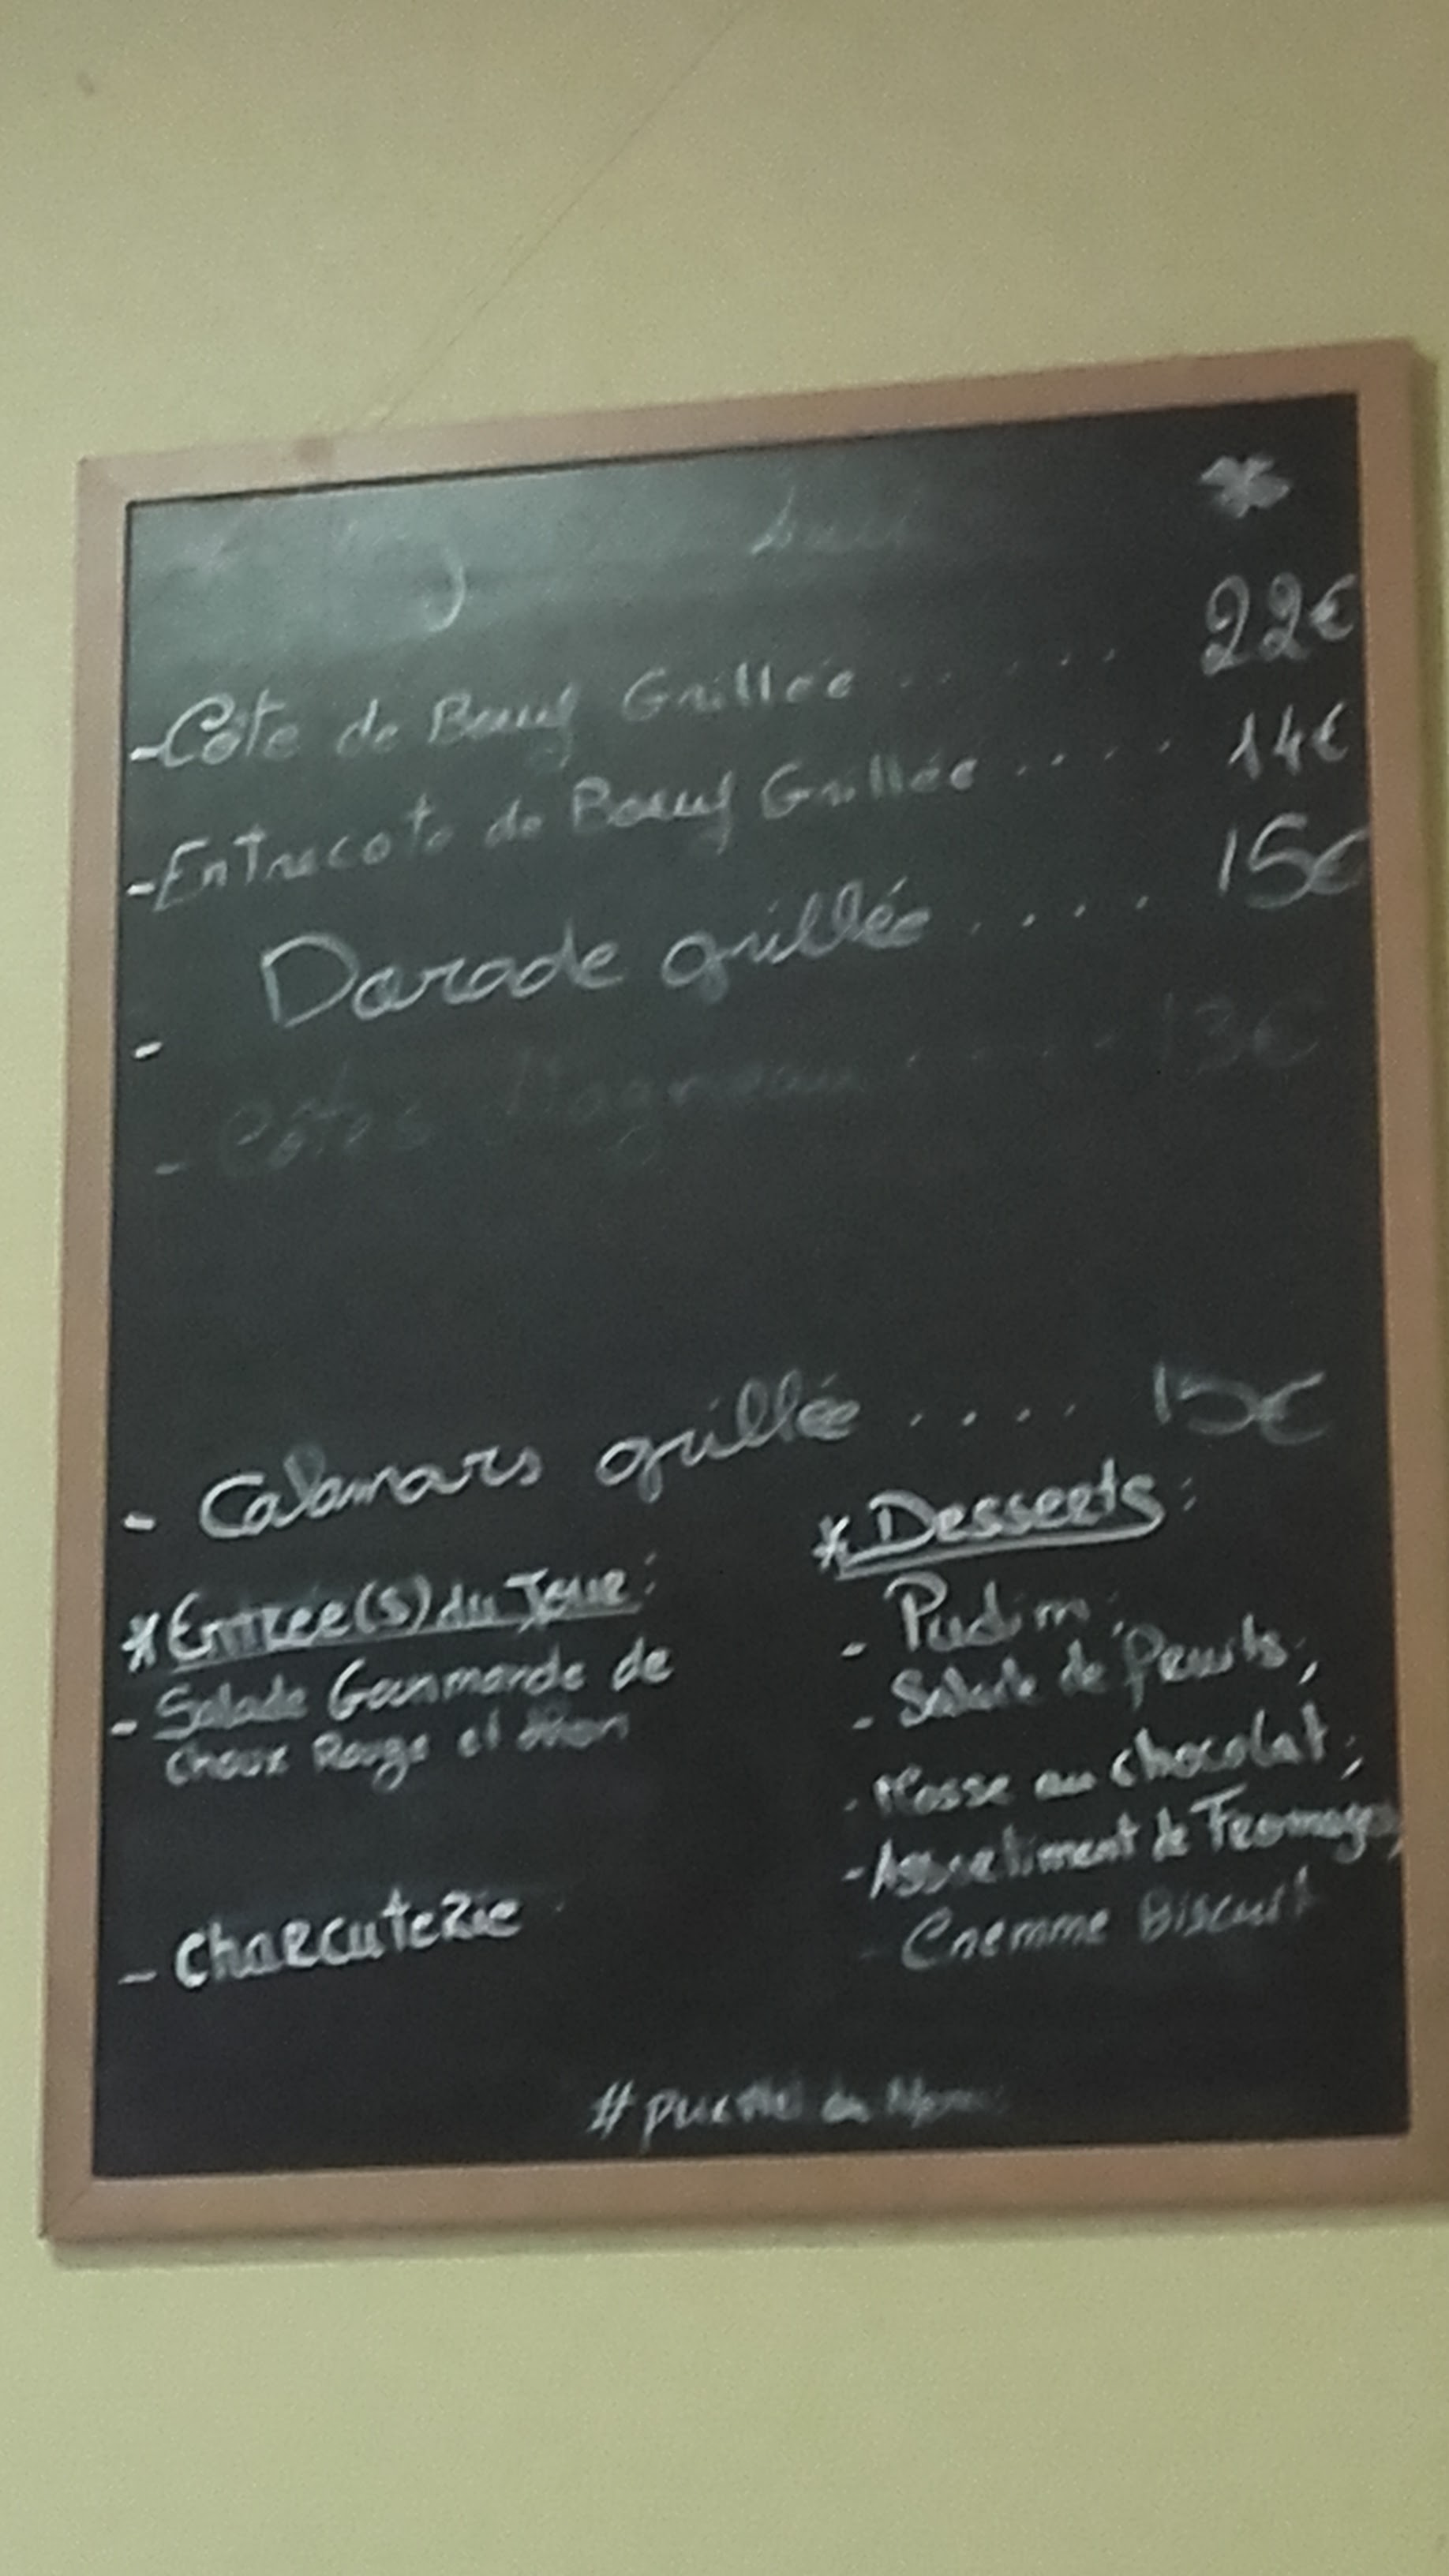 -Côte de Bœuf Grillée ...... 22€
-Entrecote de Bœuf Grillée .... 14€
- Darade grillée .... 15€
- Côtes d'agneau ..... 13€
- Calamars grillé .... 15€
* Entrée(s) du Jour:
- Salade Gourmande de
choux Rouge et thon
- charcuterie
* Desserts:
- Pudim;
- Salade de fruits;
- Mosse au chocolat;
- Assortiment de Fromages,
- Cremme Biscuit